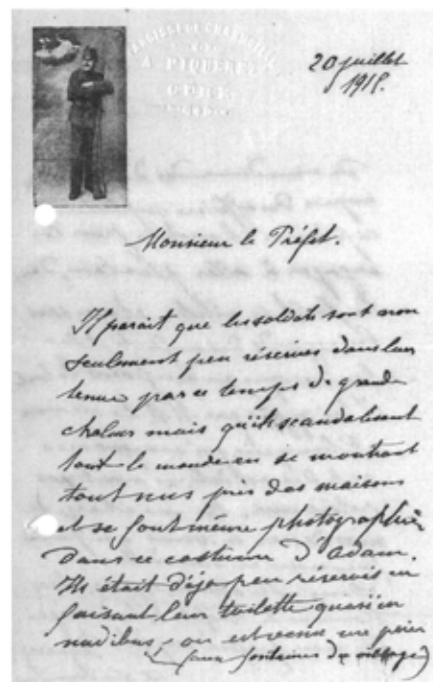 PAROISSE DE CHARMOILLE
A. PIQUEREZ
CURÉ
20 juillet
1915.
Monsieur le Préfet.
Il parait que les soldats sont non
seulment peu réservés dans leur
tenue par ce temps de grande
chaleur mais qu'ils scandalisent
tout le monde en se montrant
tout nus près des maisons
et se font même photographier
dans ce costume d'Adam.
Ils était déjà peu réservés en
faisant leur toilette quasi in
nudibus, on est venu me
(aux fontaines du village)